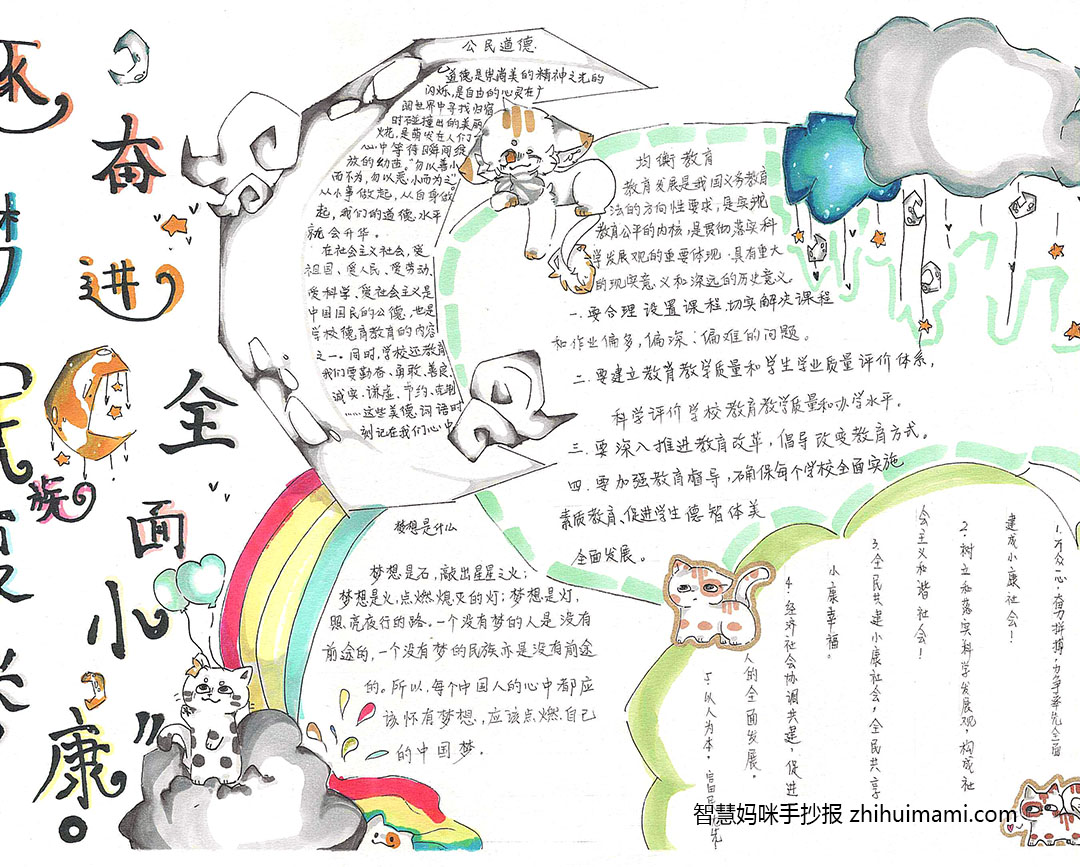 奋
进
全
面
小
康
。
族
公民道德
道德,是崇尚美的精神之光的
闪烁,是自由的心灵在广
阔世界中寻找归宿
时碰撞出的美丽
火花,是萌发在人们
心中等待瞬间绽
放的幼芭。“勿以善小
而不为,勿以恶小而为之”。
从小事做起,从自身做
起,我们的道德水平
就会升华。
在社会主义社会,爱
祖国、爱人民、爱劳动、
爱科学、爱社会主义是
中国国民的公德,也是
学校德育教育的内容
之一。同时,学校还教育
我们要勤奋、勇敢、善良、
诚实、谦虚、节约、克制
……这些美德,词语时
刻记在我们心中
均衡教育
教育发展是我国义务教育
法的方向性要求,是实现
教育公平的内核,是贯彻落实科
学发展观的重要体现,具有重大
的现实意义和深远的历史意义。
一.要合理设置课程,切实解决课程
和作业偏多,偏深、偏难的问题。
二.要建立教育教学质量和学生学业质量评价体系,
科学评价学校教育教学质量和办学水平。
三.要深入推进教育改革,倡导改变教育方式。
四.要加强教育督导,确保每个学校全面实施
素质教育、促进学生德智体美
全面发展。
梦想是什么
梦想是石,敲出星星之火;
梦想是火,点燃熄灭的灯;梦想是灯,
照亮夜行的路。一个没有梦的人是没有
前途的,一个没有梦的民族亦是没有前途
的。所以,每个中国人的心中都应
该怀有梦想,应该点燃自己
的中国梦。
1.万众一心,奋力拼搏,力争率先全面
建成小康社会!
2.树立和落实科学发展观,构成社
会主义和谐社会!
3.全民共建小康社会,全民共享
小康幸福。
4.经济社会协调共建,促进
人的全面发展。
5.以人为本,富民优先
智慧妈咪手抄报 zhihuimami.com